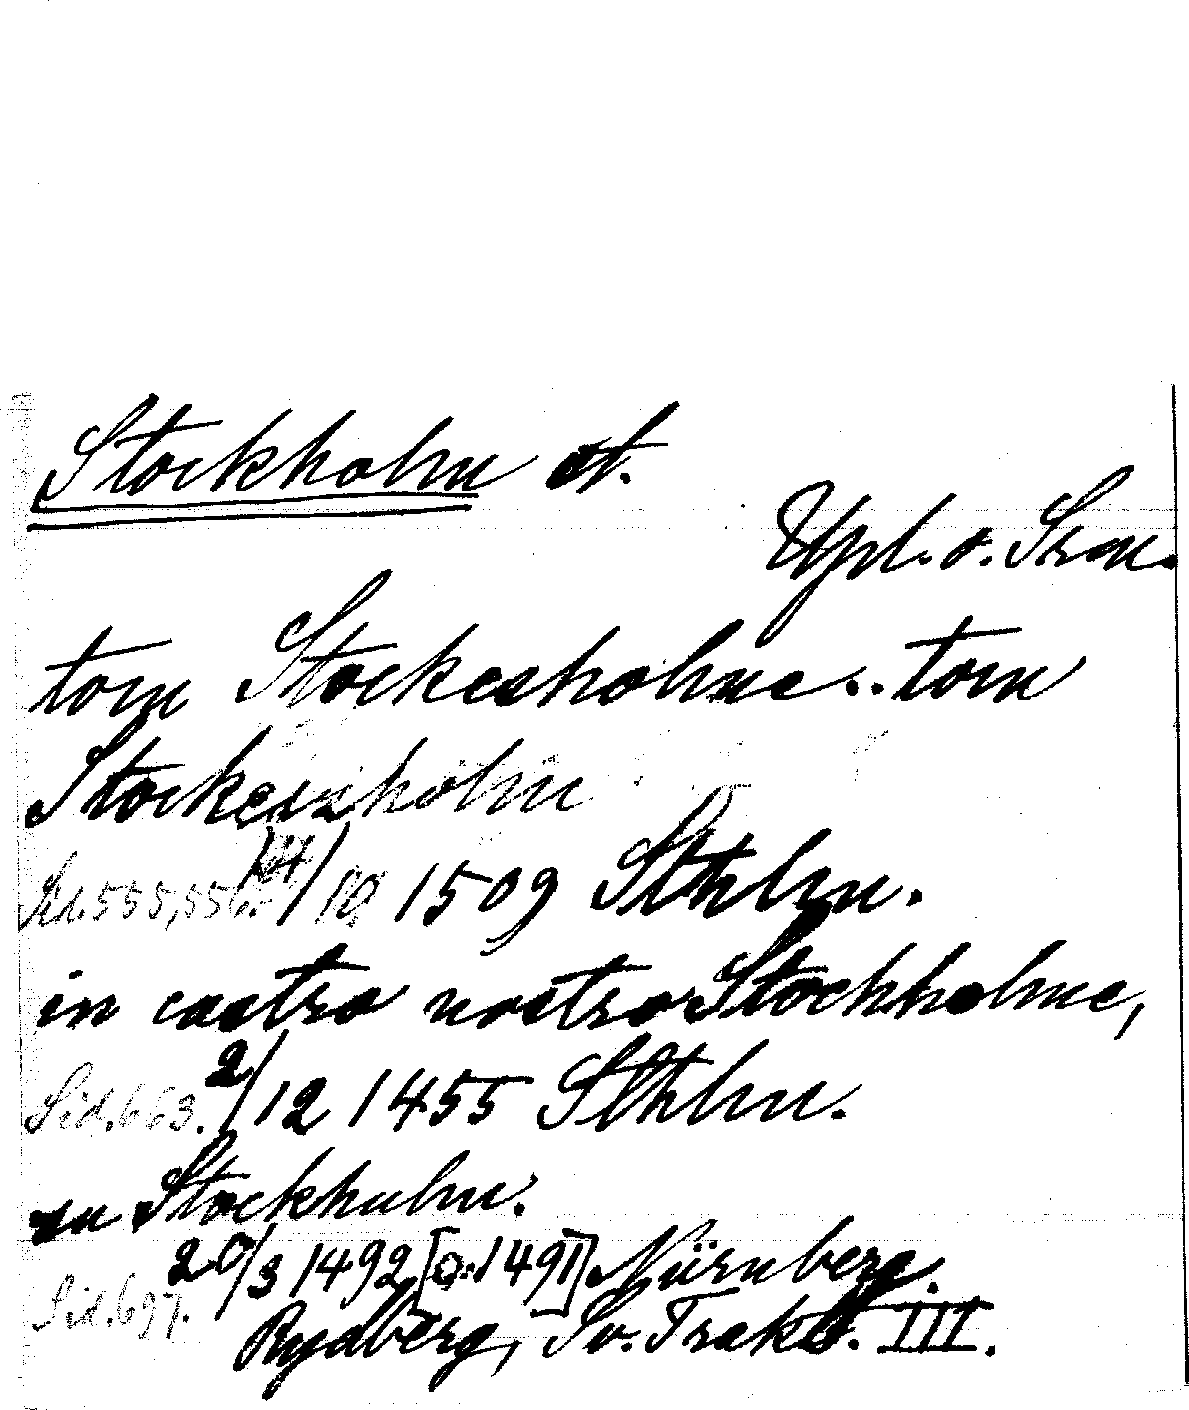 Stockholm st.
Upl. o. Srm.
tom Stockesholme.. tom
Stockeszholm
Sid. 555, 556. 14/10 1509 Sthlm.
in castro nostro Stockholme,
Sid. 663. 2/12 1455 Sthlm.
zu Stockhulm.
20/3 1492 [o. 1491] Nürnberg.
Sid. 697.
Rydberg, Sv. Trakt. III.